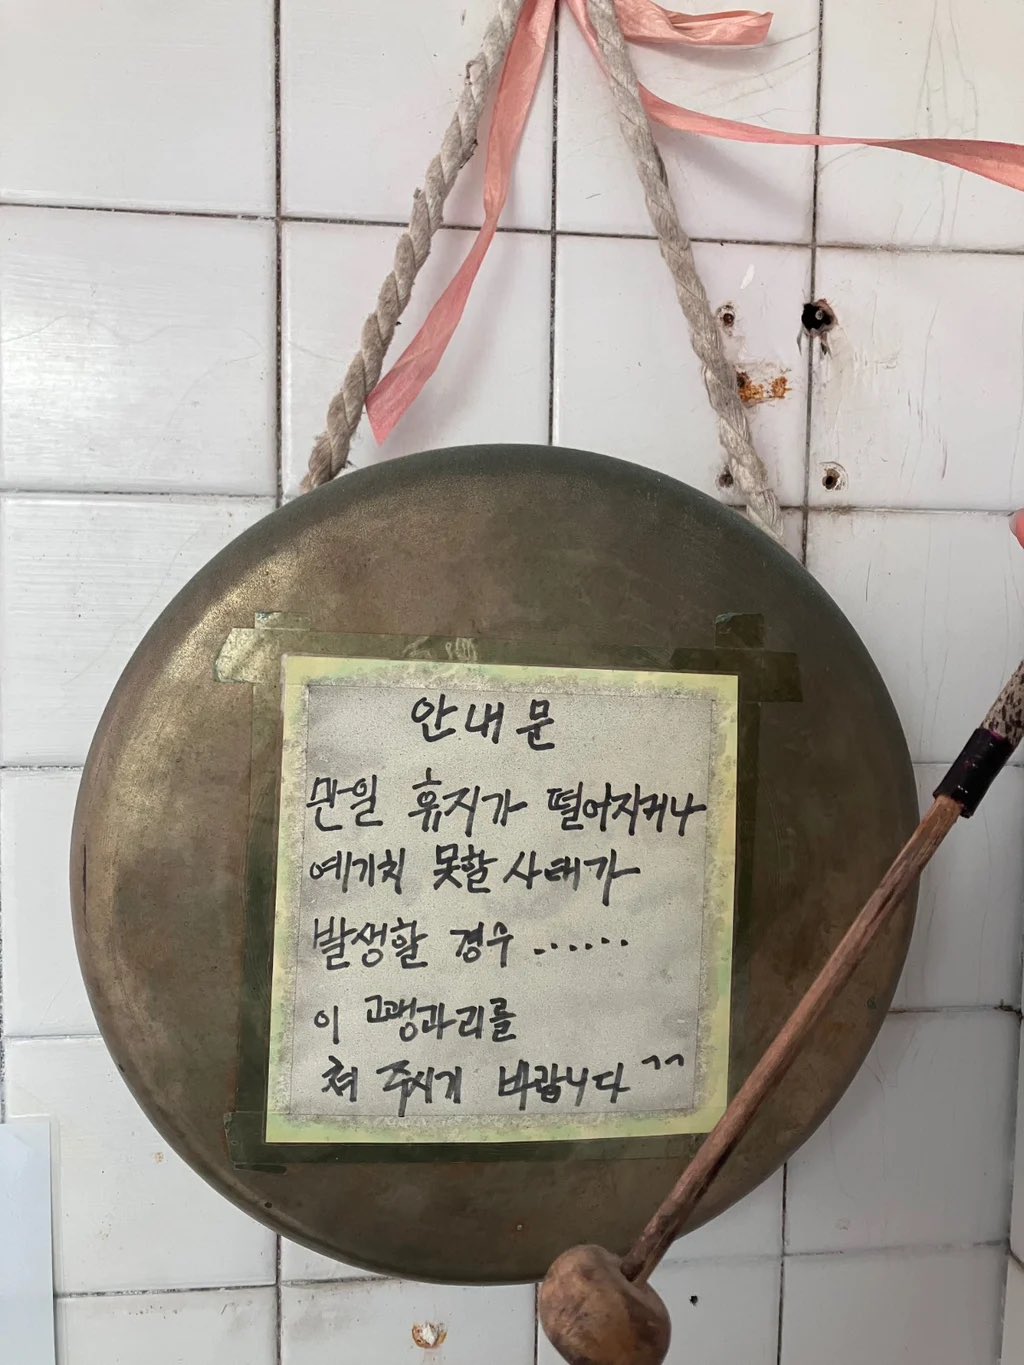 안내문
만일 휴지가 떨어지거나
예기치 못할 사태가
발생할 경우 ......
이 괭과리를
쳐 주시기 바랍니다 ^^